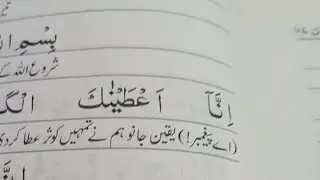 بِسْمِ
شروع اللہ کے
اِنَّاۤ اَعْطَيْنٰكَ الْكَ
(اے پیغمبر!) یقین جانو ہم نے تمہیں کوثر عطا کردی